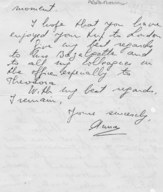 moment.
I hope that you have
enjoyed your trip to London
Give my best regards
to Mrs Bazalgette and
to all my colleagues in
the office, especially to
With my best regards,
I remain,
Yours sincerely,
Anna